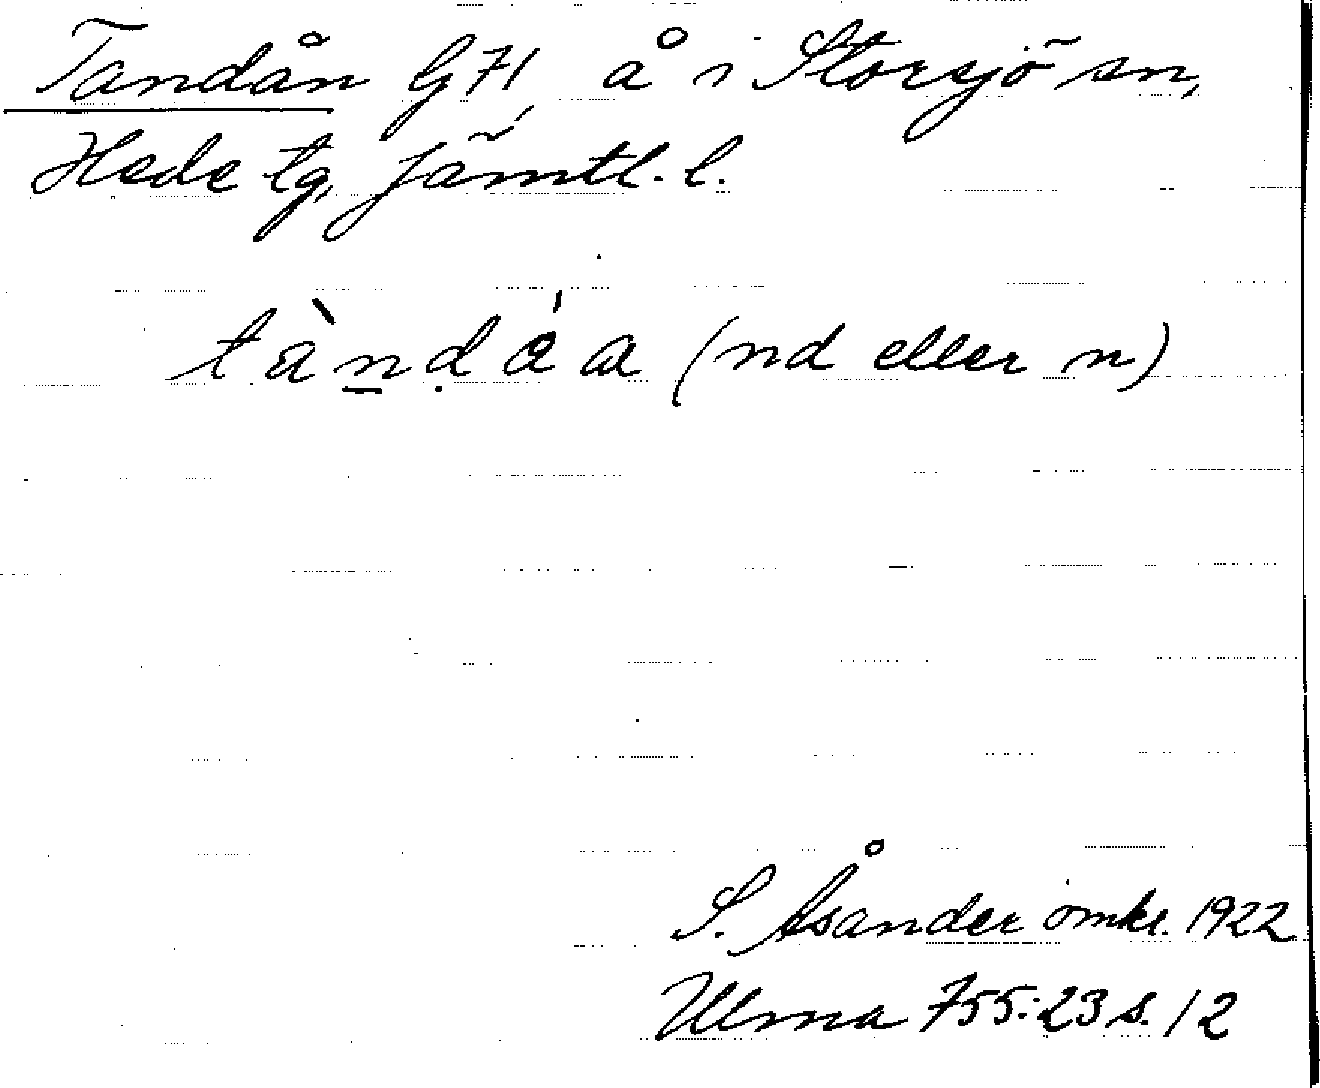 Tandån G71, å i Storsjö sn,
Hede tg, Jämtl. l.
tàndáa (nd eller n)
S. Åsander omkr. 1922
Ulma 755:23 s. 12